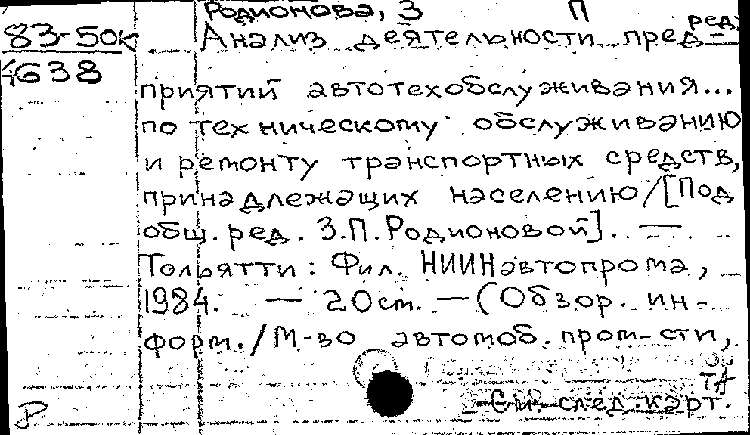 Родионова, З П ред.
83-50к Анализ деятельности пред-
4638
приятий автотехобслуживания...
по техническому обслуживанию
и ремонту транспортных средств,
принадлежащих населению/[Под
общ. ред. З.П.Родионовой]. —
Тольятти: Фил. НИИНавтопрома,
1984. — 20 см. — (Обзор. ин-
форм./М-во автомоб. пром-сти,
См. след. карт.
Р